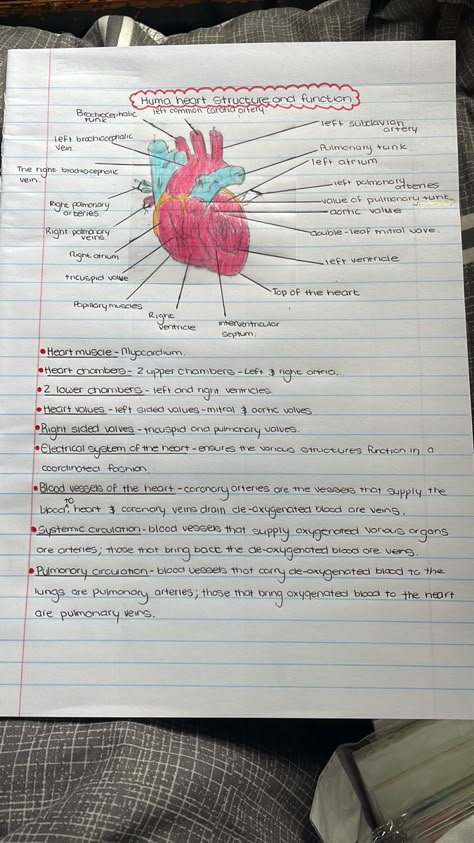 Huma heart structure and function
Brachiocephalic
tunk.
left common carotid artery.
left subclavian
artery
left brachiocephalic
vein.
Pulmonary tunk
left atrium
The right brachiocephalic
vein.
left pulmonary
arteries
Right pulmonary
arteries.
valve of pulmonary tunk
aortic valve
Right pulmonary
veins.
double-leaf mitral wave.
Right atrium
left ventricle
tricuspid valve
Top of the heart
Papillary muscles
Right
ventricle
interventricular
septum.
• Heart muscle - Myocardium.
• Heart chambers - 2 upper chambers - Left & right atria.
• 2 lower chambers - left and right ventricles
• Heart valves - left sided valves - mitral & aortic valves
• Right sided valves - tricuspid and pulmonary valves.
• Electrical system of the heart - ensures the various structures function in a
coordinated fashion
• Blood vessels of the heart - coronary arteries are the vessels that supply the
blood to heart & coronary veins drain de-oxygenated blood are veins.
• Systemic circulation - blood vessels that supply oxygenated various organs
are arteries; those that bring back the de-oxygenated blood are veins.
• Pulmonary circulation - blood vessels that carry de-oxygenated blood to the
lungs are pulmonary arteries; those that bring oxygenated blood to the heart
are pulmonary veins.